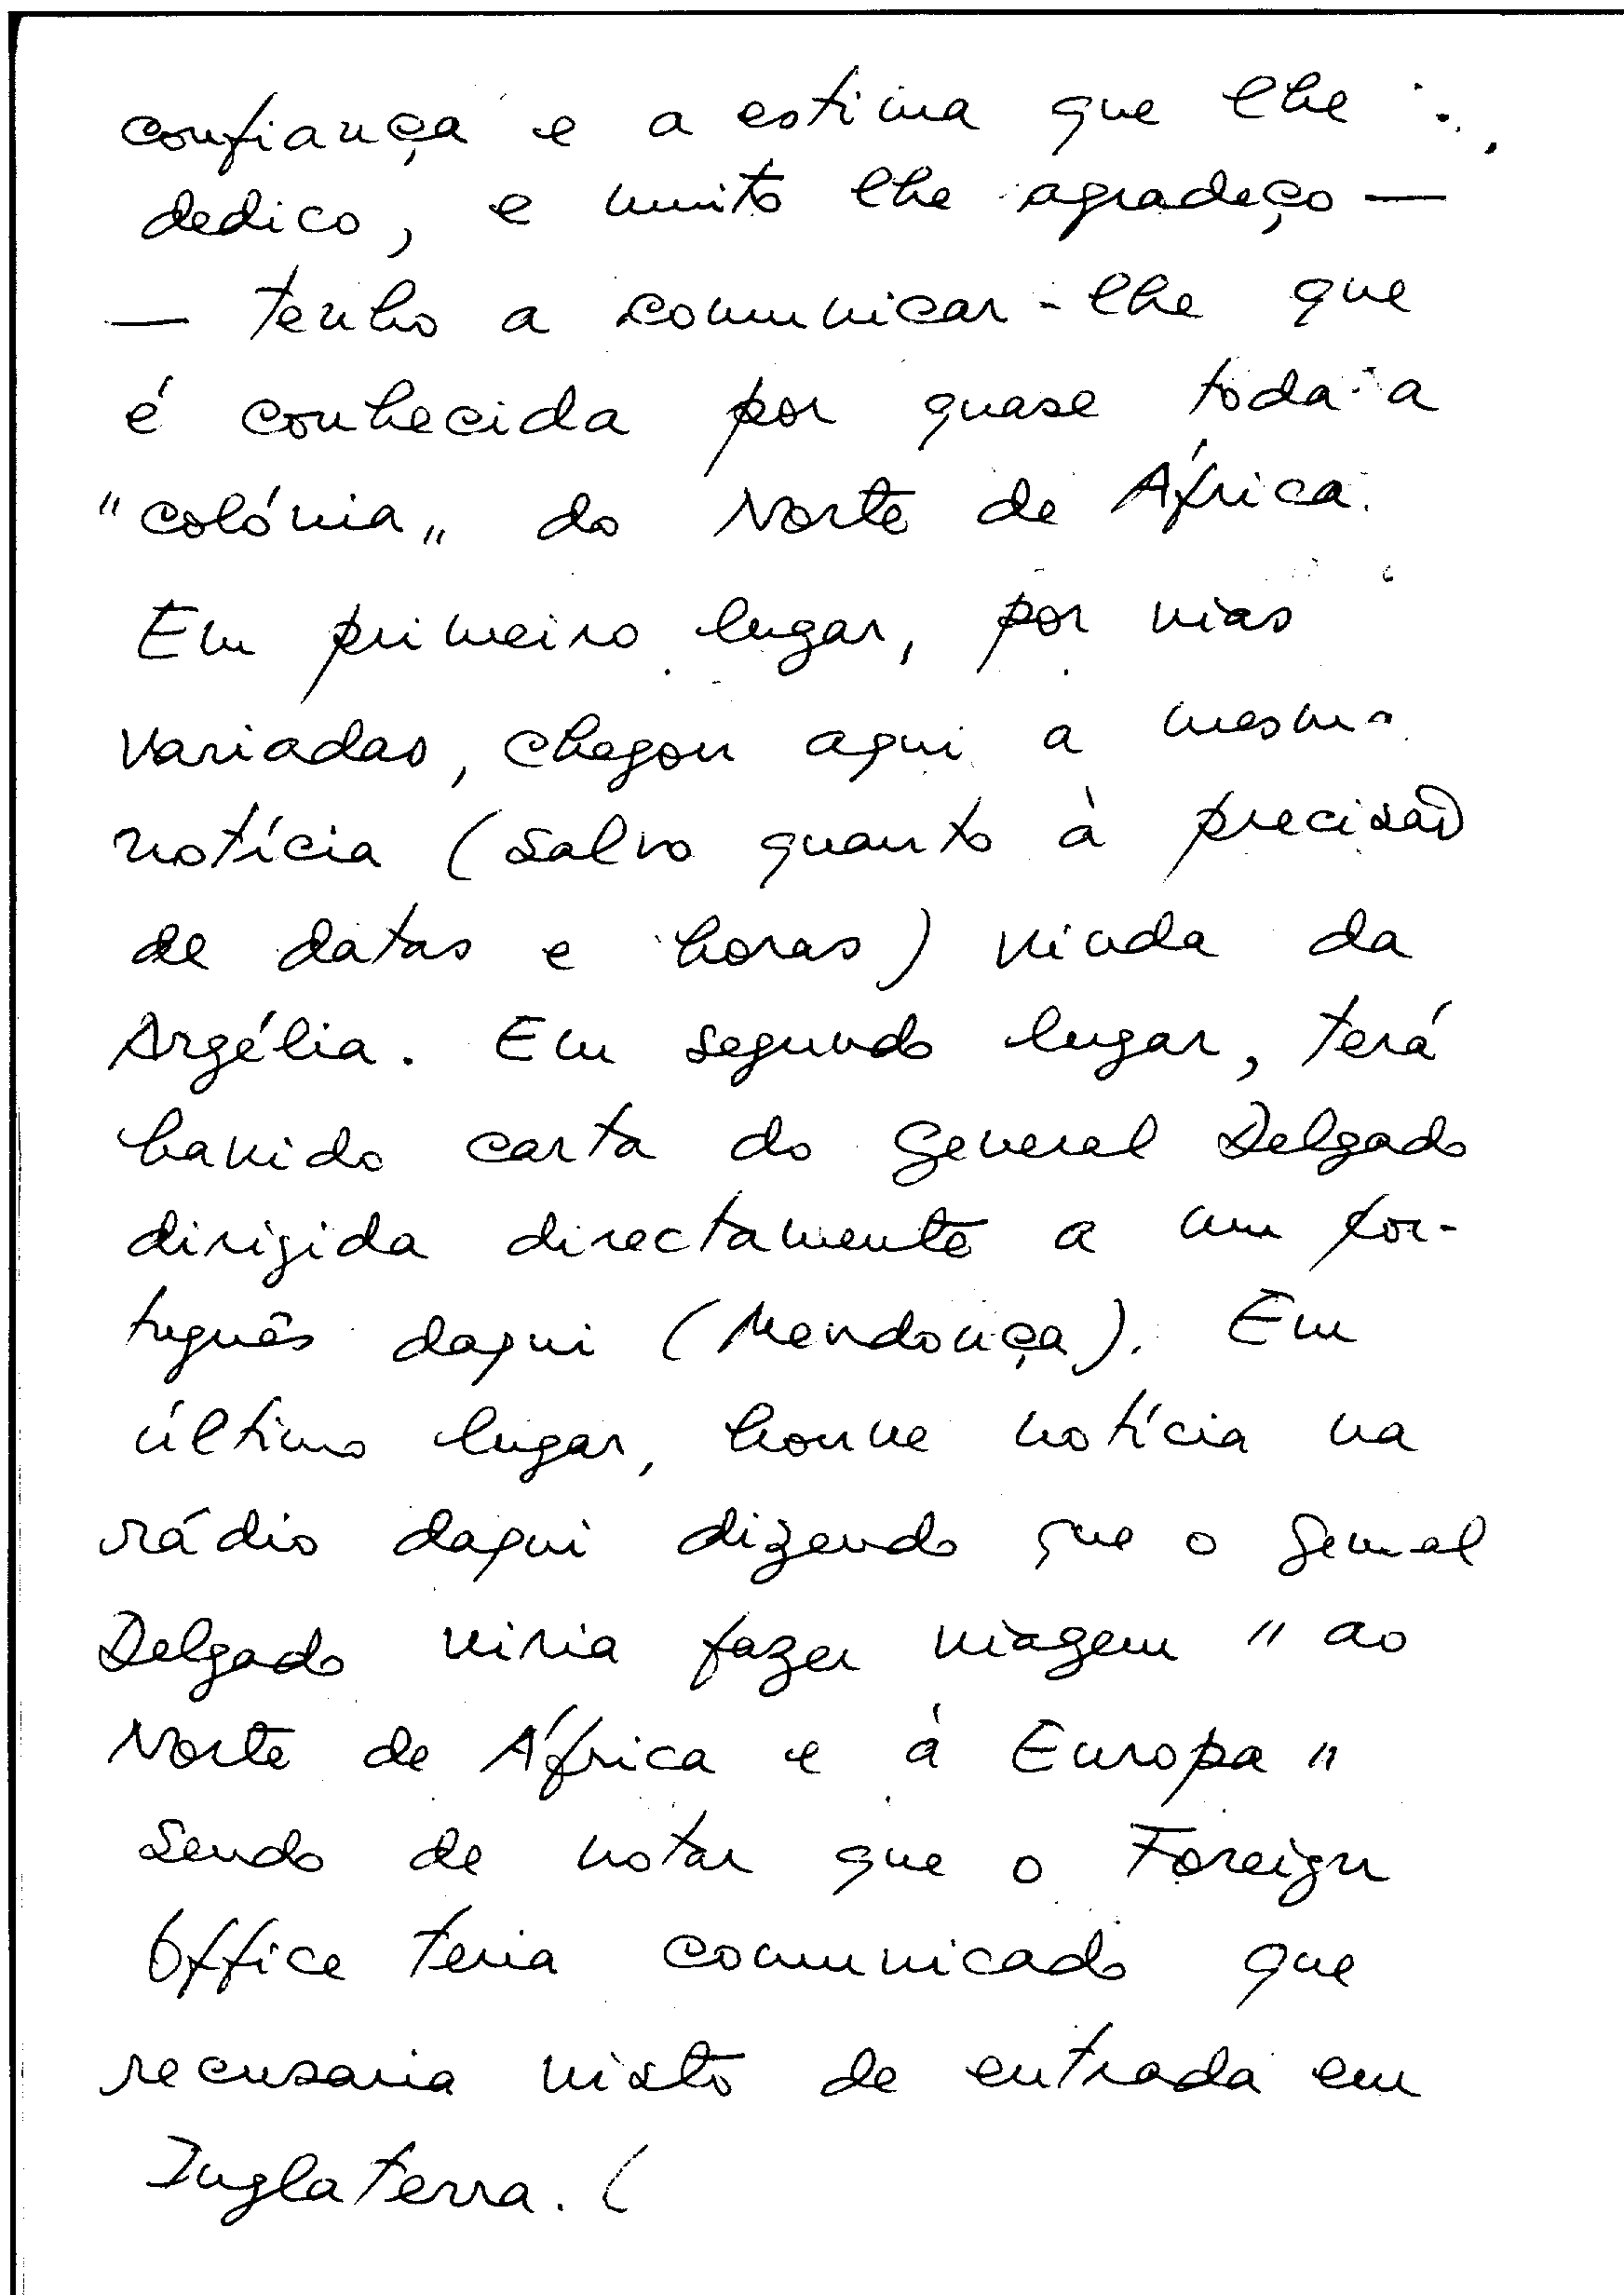 confiança e a estima que lhe
dedico, e muito lhe agradeço —
— tenho a comunicar-lhe que
é conhecida por quase toda a
"colónia" do Norte de África.
Em primeiro lugar, por vias
variadas, chegou aqui a mesma
notícia (salvo quanto à precisão
de datas e horas) vinda da
Argélia. Em segundo lugar, terá
havido carta do General Delgado
dirigida directamente a um por-
tuguês daqui (Mendonça). Em
último lugar, houve notícia na
rádio daqui dizendo que o General
Delgado viria fazer viagem "ao
Norte de África e à Europa"
sendo de notar que o Foreign
Office teria comunicado que
recusaria visto de entrada em
Inglaterra. (